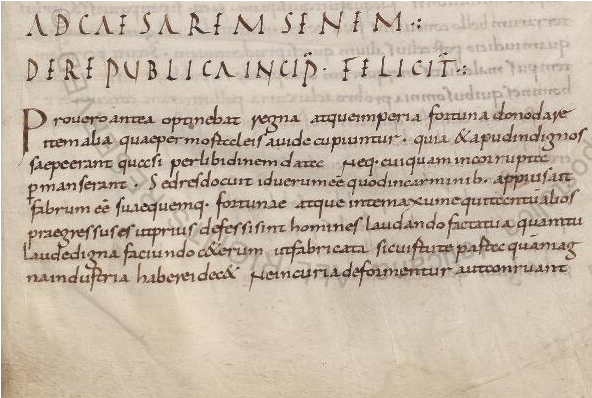 AD CAESAREM SENEM ·:
DE RE PUBLICA INCIP̄ · FELICIT̄ ·:
Pro vero antea optinebat regna atque imperia fortuna dono dare
item alia quae per mostcleis avide cupiuntur · quia & apud indignos
saepe erant quasi per libidinem data neq· cuiquam incorrupta
p manserant · Sed res docuit id verum eē quod in carminib· appius ait
fabrum eē suae quemq· fortunae atque in te maxume qui tantū alios
praegressus es ut prius defessi sint homines laudando facta tua quam tu
laude digna faciundo c&erum ut fabricata sic virtute parta quā mag
na industria haberei dec& Ne incuria deformentur aut conruant